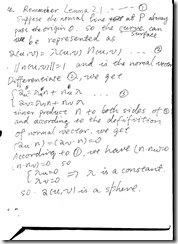 Q. Remember Lemma 2.1 --- ①
Suppose the normal line at P always
pass the origin O. so the surface can
be represented as
a(u,v) = λ(u,v) n(u,v) --- ②
||n(u,v)||=1 and is the normal vector
Differentiate ②, we get
{ au = λu n + λ nu ③
av = λv n + nv λ
inner product n to both sides of ③
and according to the definition
of normal vector. we get
(au n) = (av n) = 0
According to ①, we have (n nu) = 0
(n nv) = 0 so
{ λu = 0
λv = 0 ⇒ λ is a constant.
so a(u,v) is a sphere.